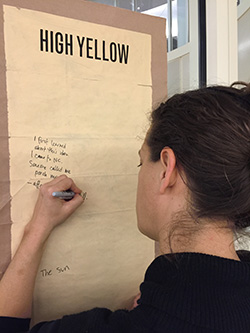 HIGH YELLOW
I first learned
about this when
I came to NYC
Someone called me
The sun